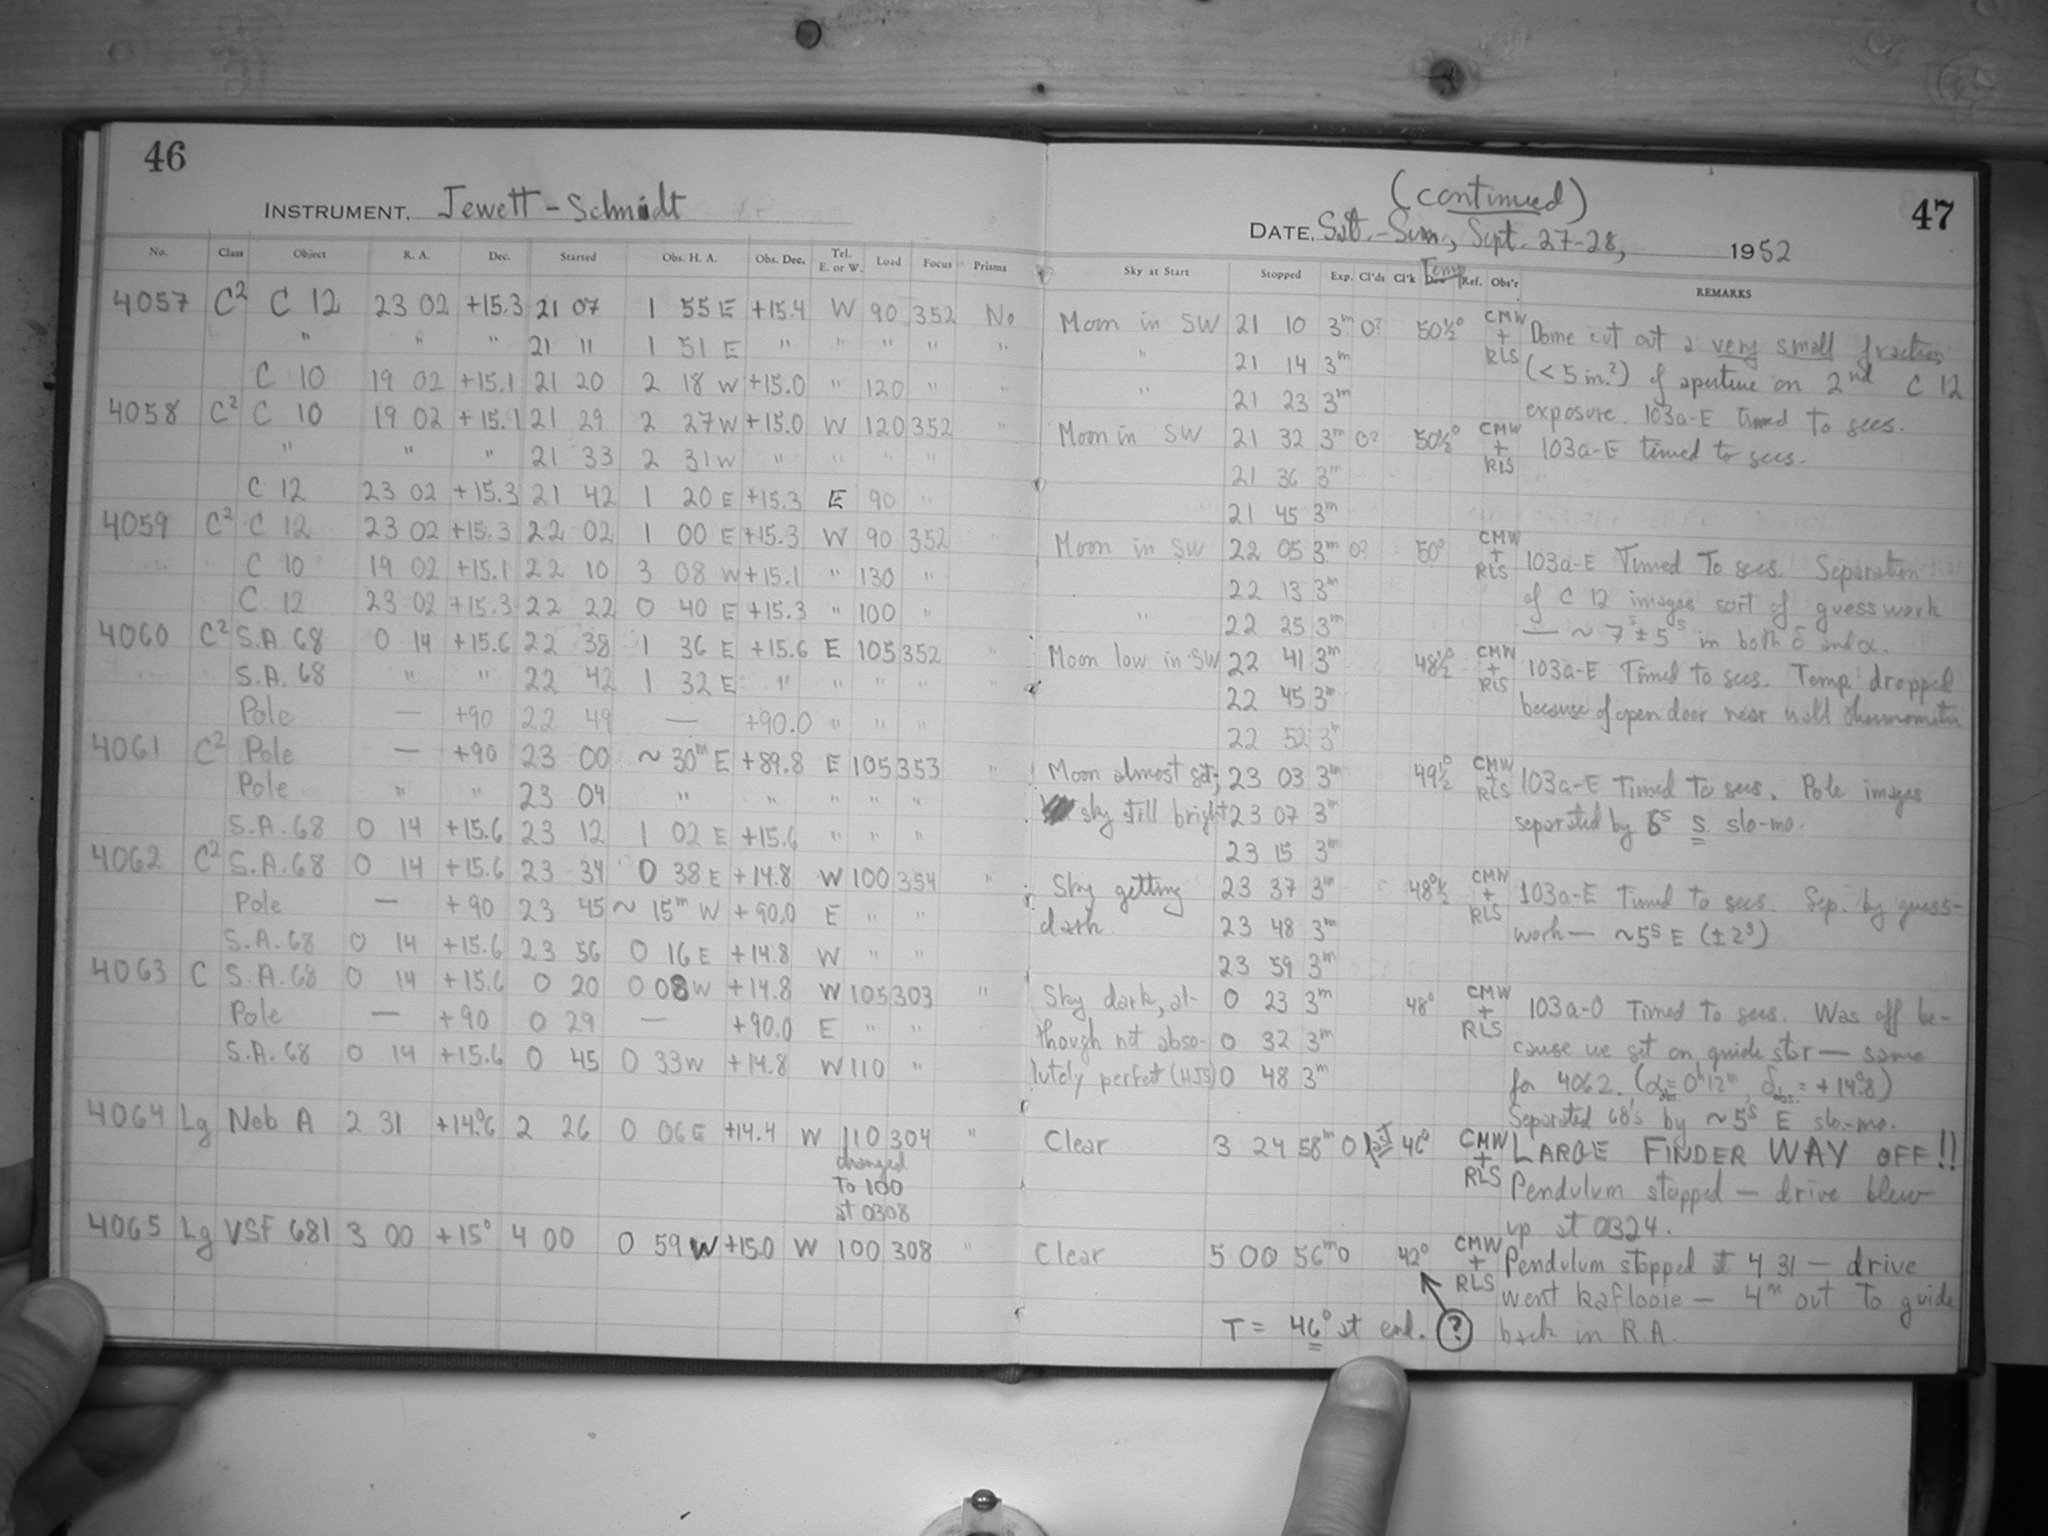 46
INSTRUMENT, Jewett-Schmidt
No. Class Object R. A. Dec. Started Obs. H. A. Obs. Dec. Tel. E. or W. Load Focus Prisms
4057 C² C 12 23 02 +15.3 21 07 1 55 E +15.4 W 90 352 No
" " " 21 11 1 51 E " " " " "
C 10 19 02 +15.1 21 20 2 18 W +15.0 " 120 " "
4058 C² C 10 19 02 +15.1 21 29 2 27 W +15.0 W 120 352 "
" " " 21 33 2 31 W " " " "
C 12 23 02 +15.3 21 42 1 20 E +15.3 E 90 "
4059 C² C 12 23 02 +15.3 22 02 1 00 E +15.3 W 90 352 "
C 10 19 02 +15.1 22 10 3 08 W +15.1 " 130 "
C 12 23 02 +15.3 22 22 0 40 E +15.3 " 100 "
4060 C² S.A. 68 0 14 +15.6 22 38 1 36 E +15.6 E 105 352 "
S.A. 68 " " 22 42 1 32 E " " " " "
Pole — +90 22 49 — +90.0 " " "
4061 C² Pole — +90 23 00 ~ 30ᵐ E +89.8 E 105 353 "
Pole " " 23 04 " " " " "
S.A. 68 0 14 +15.6 23 12 1 02 E +15.6 " " "
4062 C² S.A. 68 0 14 +15.6 23 34 0 38 E +14.8 W 100 354 "
Pole — +90 23 45 ~ 15ᵐ W +90.0 E " "
S.A. 68 0 14 +15.6 23 56 0 16 E +14.8 W " "
4063 C S.A. 68 0 14 +15.6 0 20 0 08 W +14.8 W 105 303 "
Pole — +90 0 29 — +90.0 E " "
S.A. 68 0 14 +15.6 0 45 0 33 W +14.8 W 110 "
4064 Lg Neb A 2 31 +14.°6 2 26 0 06 E +14.4 W 110 304 "
changed
to 100
at 0308
4065 Lg VSF 681 3 00 +15° 4 00 0 59 W +15.0 W 100 308 "
(continued)
47
DATE, Sat.-Sun., Sept. 27-28, 1952
Sky at Start Stopped Exp. Cl'ds Cl'k Temp Ref. Obs'r REMARKS
Moon in SW 21 10 3ᵐ 0? 50½° CMW + RLS Dome cut out a very small fraction
" 21 14 3ᵐ (<5 in.²) of aperture on 2nd C 12
" 21 23 3ᵐ exposure. 103a-E timed to secs.
Moon in SW 21 32 3ᵐ 0? 50½° CMW + RLS 103a-E timed to secs.
21 36 3ᵐ
21 45 3ᵐ
Moon in SW 22 05 3ᵐ 0? 50° CMW + RLS 103a-E Timed to secs. Separation
22 13 3ᵐ of C 12 images sort of guesswork
" 22 25 3ᵐ — ~ 7ˢ ± 5ˢ in both δ and α.
Moon low in SW 22 41 3ᵐ 48½° CMW + RLS 103a-E Timed to secs. Temp. dropped
22 45 3ᵐ because of open door near wall thermometer
22 52 3ᵐ
Moon almost set; 23 03 3ᵐ 49½° CMW + RLS 103a-E Timed to secs. Pole images
sky still bright 23 07 3ᵐ separated by 5ˢ S. slo-mo.
23 15 3ᵐ
Sky getting 23 37 3ᵐ 48½° CMW + RLS 103a-E Timed to secs. Sep. by guess-
dark. 23 48 3ᵐ work — ~5ˢ E (±2ˢ)
23 59 3ᵐ
Sky dark, al- 0 23 3ᵐ 48° CMW + RLS 103a-O Timed to secs. Was off be-
though not abso- 0 32 3ᵐ cause we set on guide star — same
lutely perfect (HJS) 0 48 3ᵐ for 4062. (α obs. = 0ʰ12ᵐ, δ obs. = +14.°8)
Separated 68's by ~5ˢ E slo-mo.
Clear 3 24 58ᵐ 0 46° CMW + RLS LARGE FINDER WAY OFF!!
Pendulum stopped — drive blew
up at 0324.
Clear 5 00 56ᵐ 0 42° CMW + RLS Pendulum stopped at 4 31 — drive
went kaflooie — 4ᵐ out to guide
T = 46° at end. ? back in R.A.